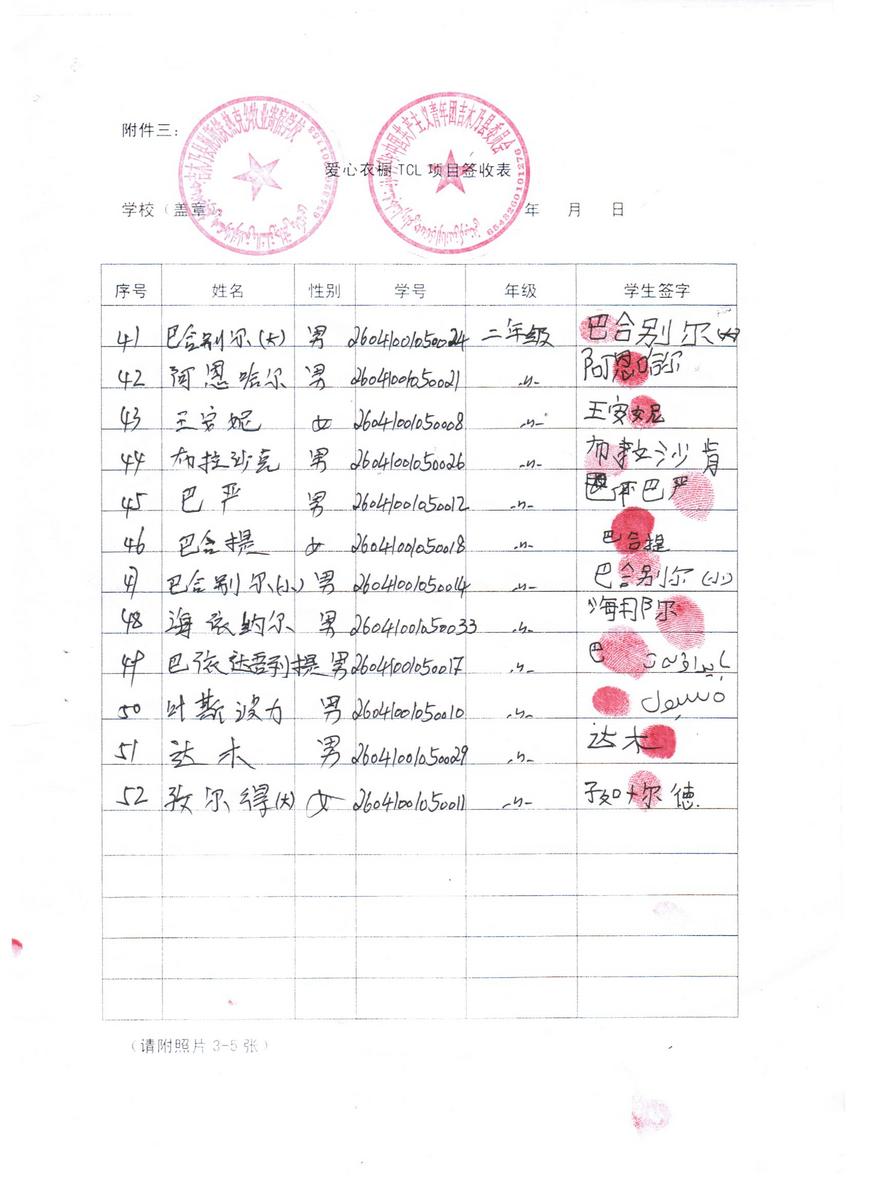 附件三：
爱心衣橱 TCL 项目签收表
学校（盖章 年 月 日
中国共产主义青年团吉木乃县委员会
序号 姓名 性别 学号 年级 学生签字
41 巴合别尔(大) 男 26041001050024 二年级 巴合别尔(大)
42 阿恩哈尔 男 26041001050021 〃 阿恩哈尔
43 王安妮 女 26041001050008 〃 王安妮
44 布拉沙克 男 26041001050026 〃 布拉沙肯
45 巴严 男 26041001050012 〃 巴严
46 巴合提 女 26041001050018 〃 巴合提
47 巴合别尔(小) 男 26041001050014 〃 巴合别尔(小)
48 海依纳尔 男 26041001050033 〃
49 巴依达吾列提 男 26041001050017 〃 巴
50 叶斯波力 男 26041001050010 〃
51 达木 男 26041001050029 〃 达木
52 孜尔得(大) 女 26041001050011 〃
（请附照片 3-5 张）